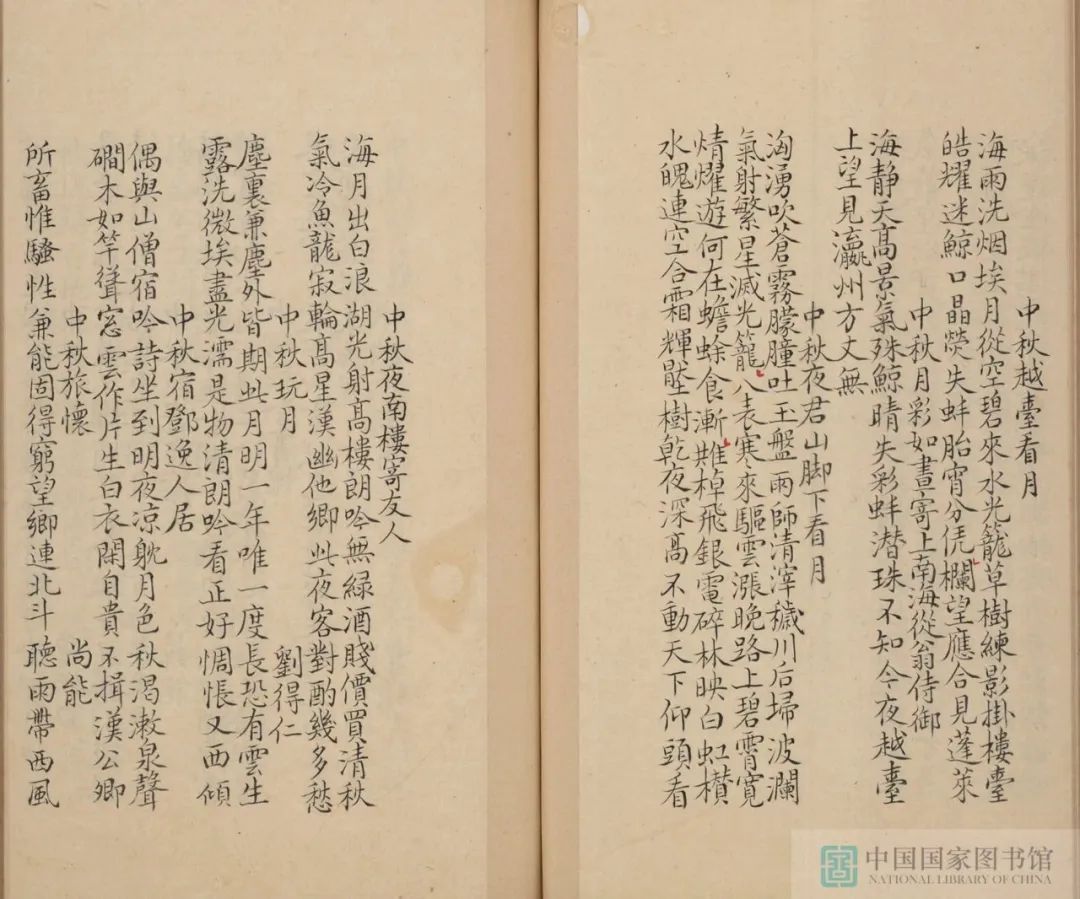 中秋越臺看月
海雨洗烟埃月從空碧來水光籠草樹練影掛樓臺
皓耀迷鯨口晶熒失蚌胎宵分凭欄望應合見蓬萊
中秋月彩如晝寄上南海從翁侍御
海靜天高景氣殊鯨睛失彩蚌潛珠不知今夜越臺
上望見瀛州方丈無
中秋夜君山脚下看月
洶湧吹蒼霧朦朣吐玉盤雨師清滓穢川后埽波瀾
氣射繁星滅光籠八表寒來驅雲漲晚路上碧霄寬
熠燿遊何在蟾蜍食漸難棹飛銀電碎林映白虹攢
水魄連空合霜輝壓樹乾夜深高不動天下仰頭看
中秋夜南樓寄友人
海月出白浪湖光射高樓朗吟無綠酒賤價買清秋
氣冷魚龍寂輪高星漢幽他鄉此夜客對酌幾多愁
中秋玩月 劉得仁
塵裏兼塵外皆期此月明一年唯一度長恐有雲生
露洗微埃盡光濡是物清朗吟看正好惆悵又西傾
中秋宿鄧逸人居
偶與山僧宿吟詩坐到明夜凉躭月色秋渴漱泉聲
磵木如竿聳窓雲作片生白衣閑自貴不揖漢公卿
中秋旅懷 尚能
所畜惟騷性兼能固得窮望鄉連北斗聽雨帶西風
中国国家图书馆
NATIONAL LIBRARY OF CHINA